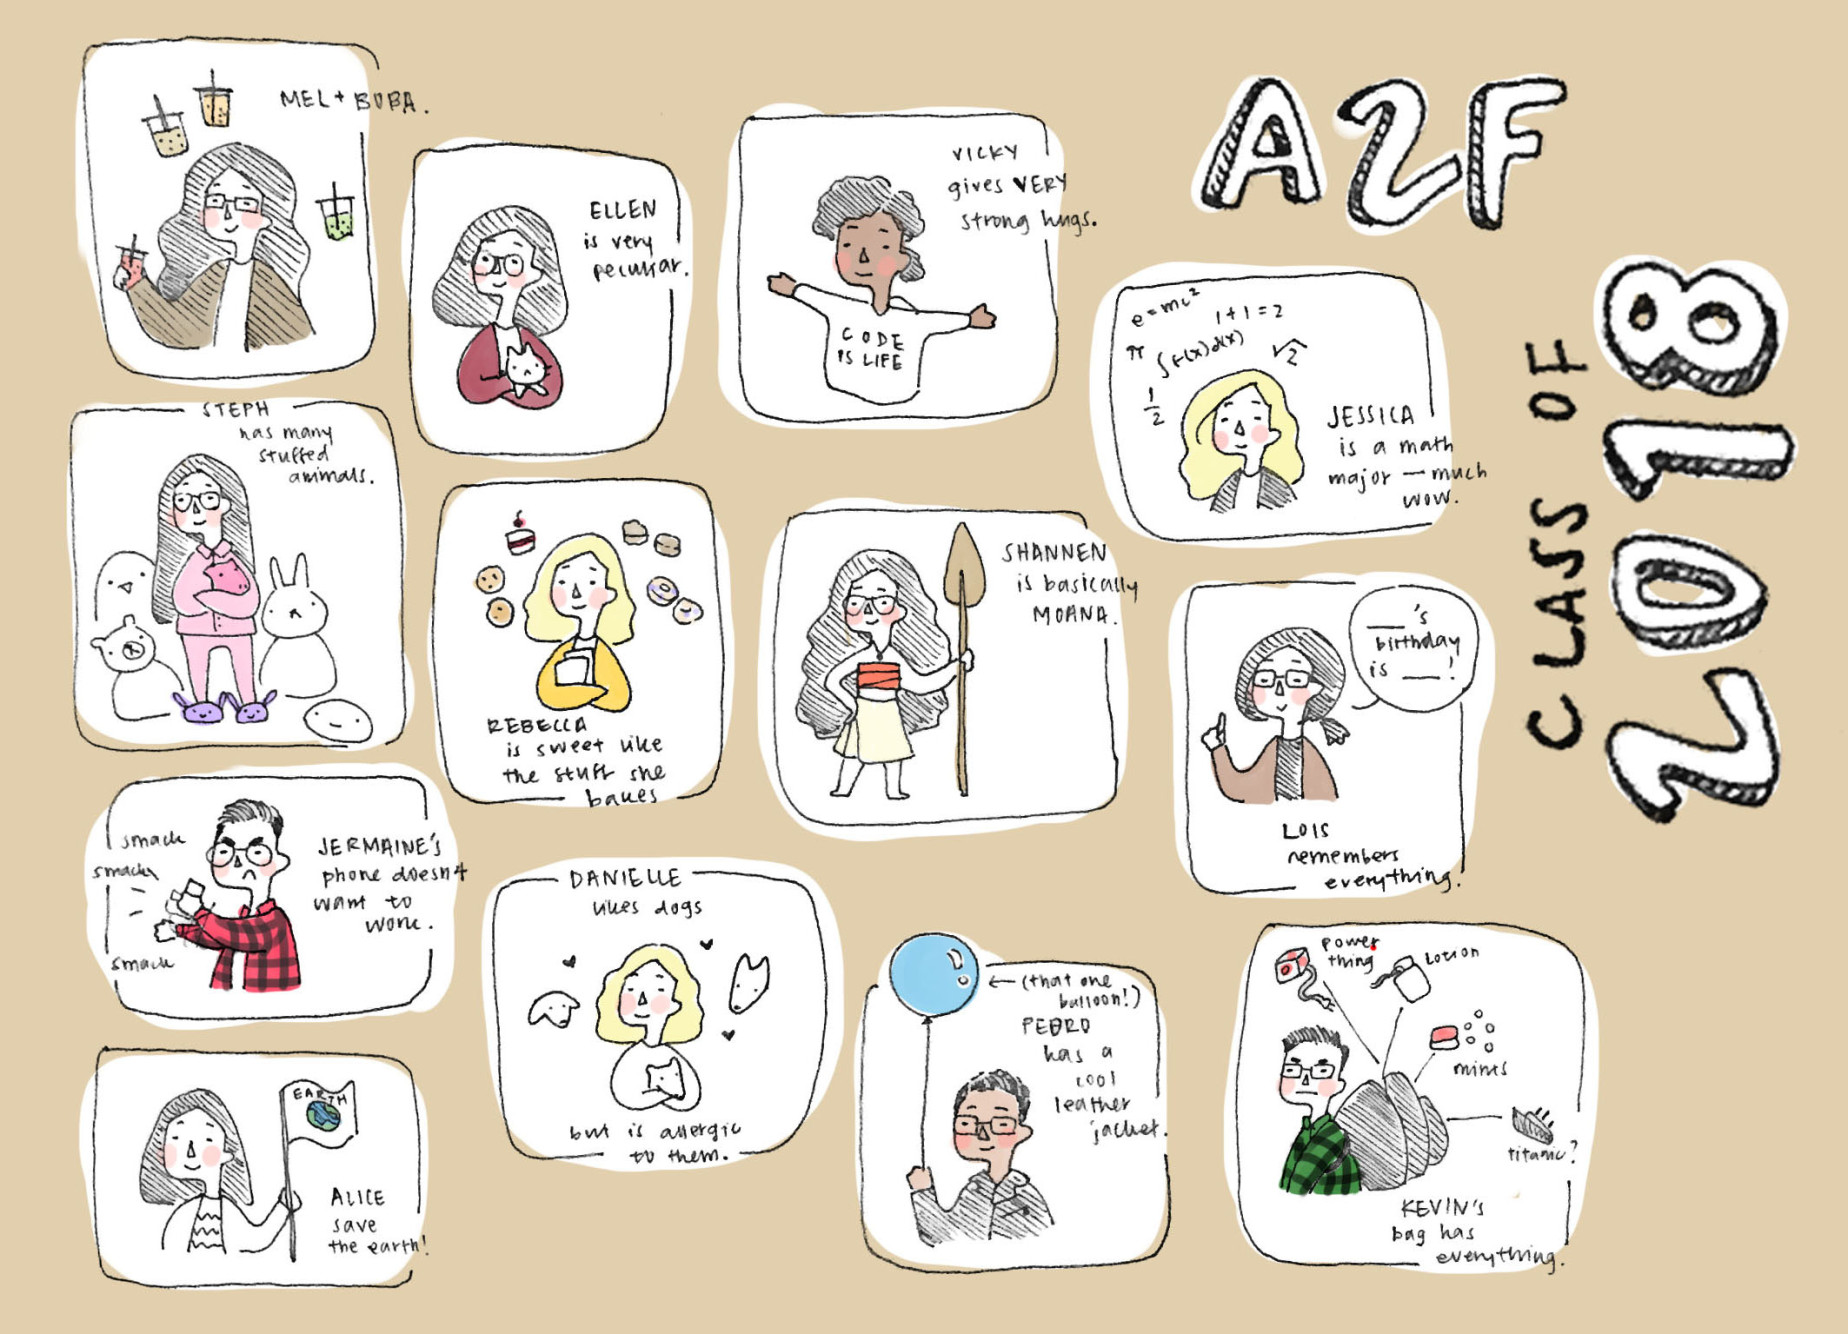 A2F
CLASS OF
2018
MEL + BOBA.
ELLEN
is very
peculiar.
VICKY
gives VERY
strong hugs.
CODE
IS LIFE
e=mc²
1+1=2
π
∫f(x)d(x)
√2
1/2
JESSICA
is a math
major — much
wow.
STEPH
has many
stuffed
animals.
REBECCA
is sweet like
the stuff she
bakes
SHANNEN
is basically
MOANA.
___'s
birthday
is ___!
LOIS
remembers
everything!
smack
smack
smack
JERMAINE'S
phone doesn't
want to
work.
DANIELLE
likes dogs
but is allergic
to them.
← (that one
balloon!)
PEDRO
has a
cool
leather
jacket.
power
thing
Lotion
mints
titanic?
KEVIN'S
bag has
everything.
EARTH
ALICE
save
the earth!